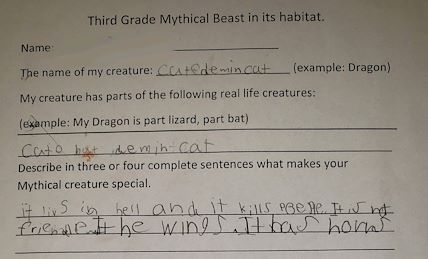 Third Grade Mythical Beast in its habitat.
Name:
The name of my creature: catedemincat (example: Dragon)
My creature has parts of the following real life creatures:
(example: My Dragon is part lizard, part bat)
cat
Describe in three or four complete sentences what makes your
Mythical creature special.
it livs in hell and it kills It is not
It he wings. It has horns